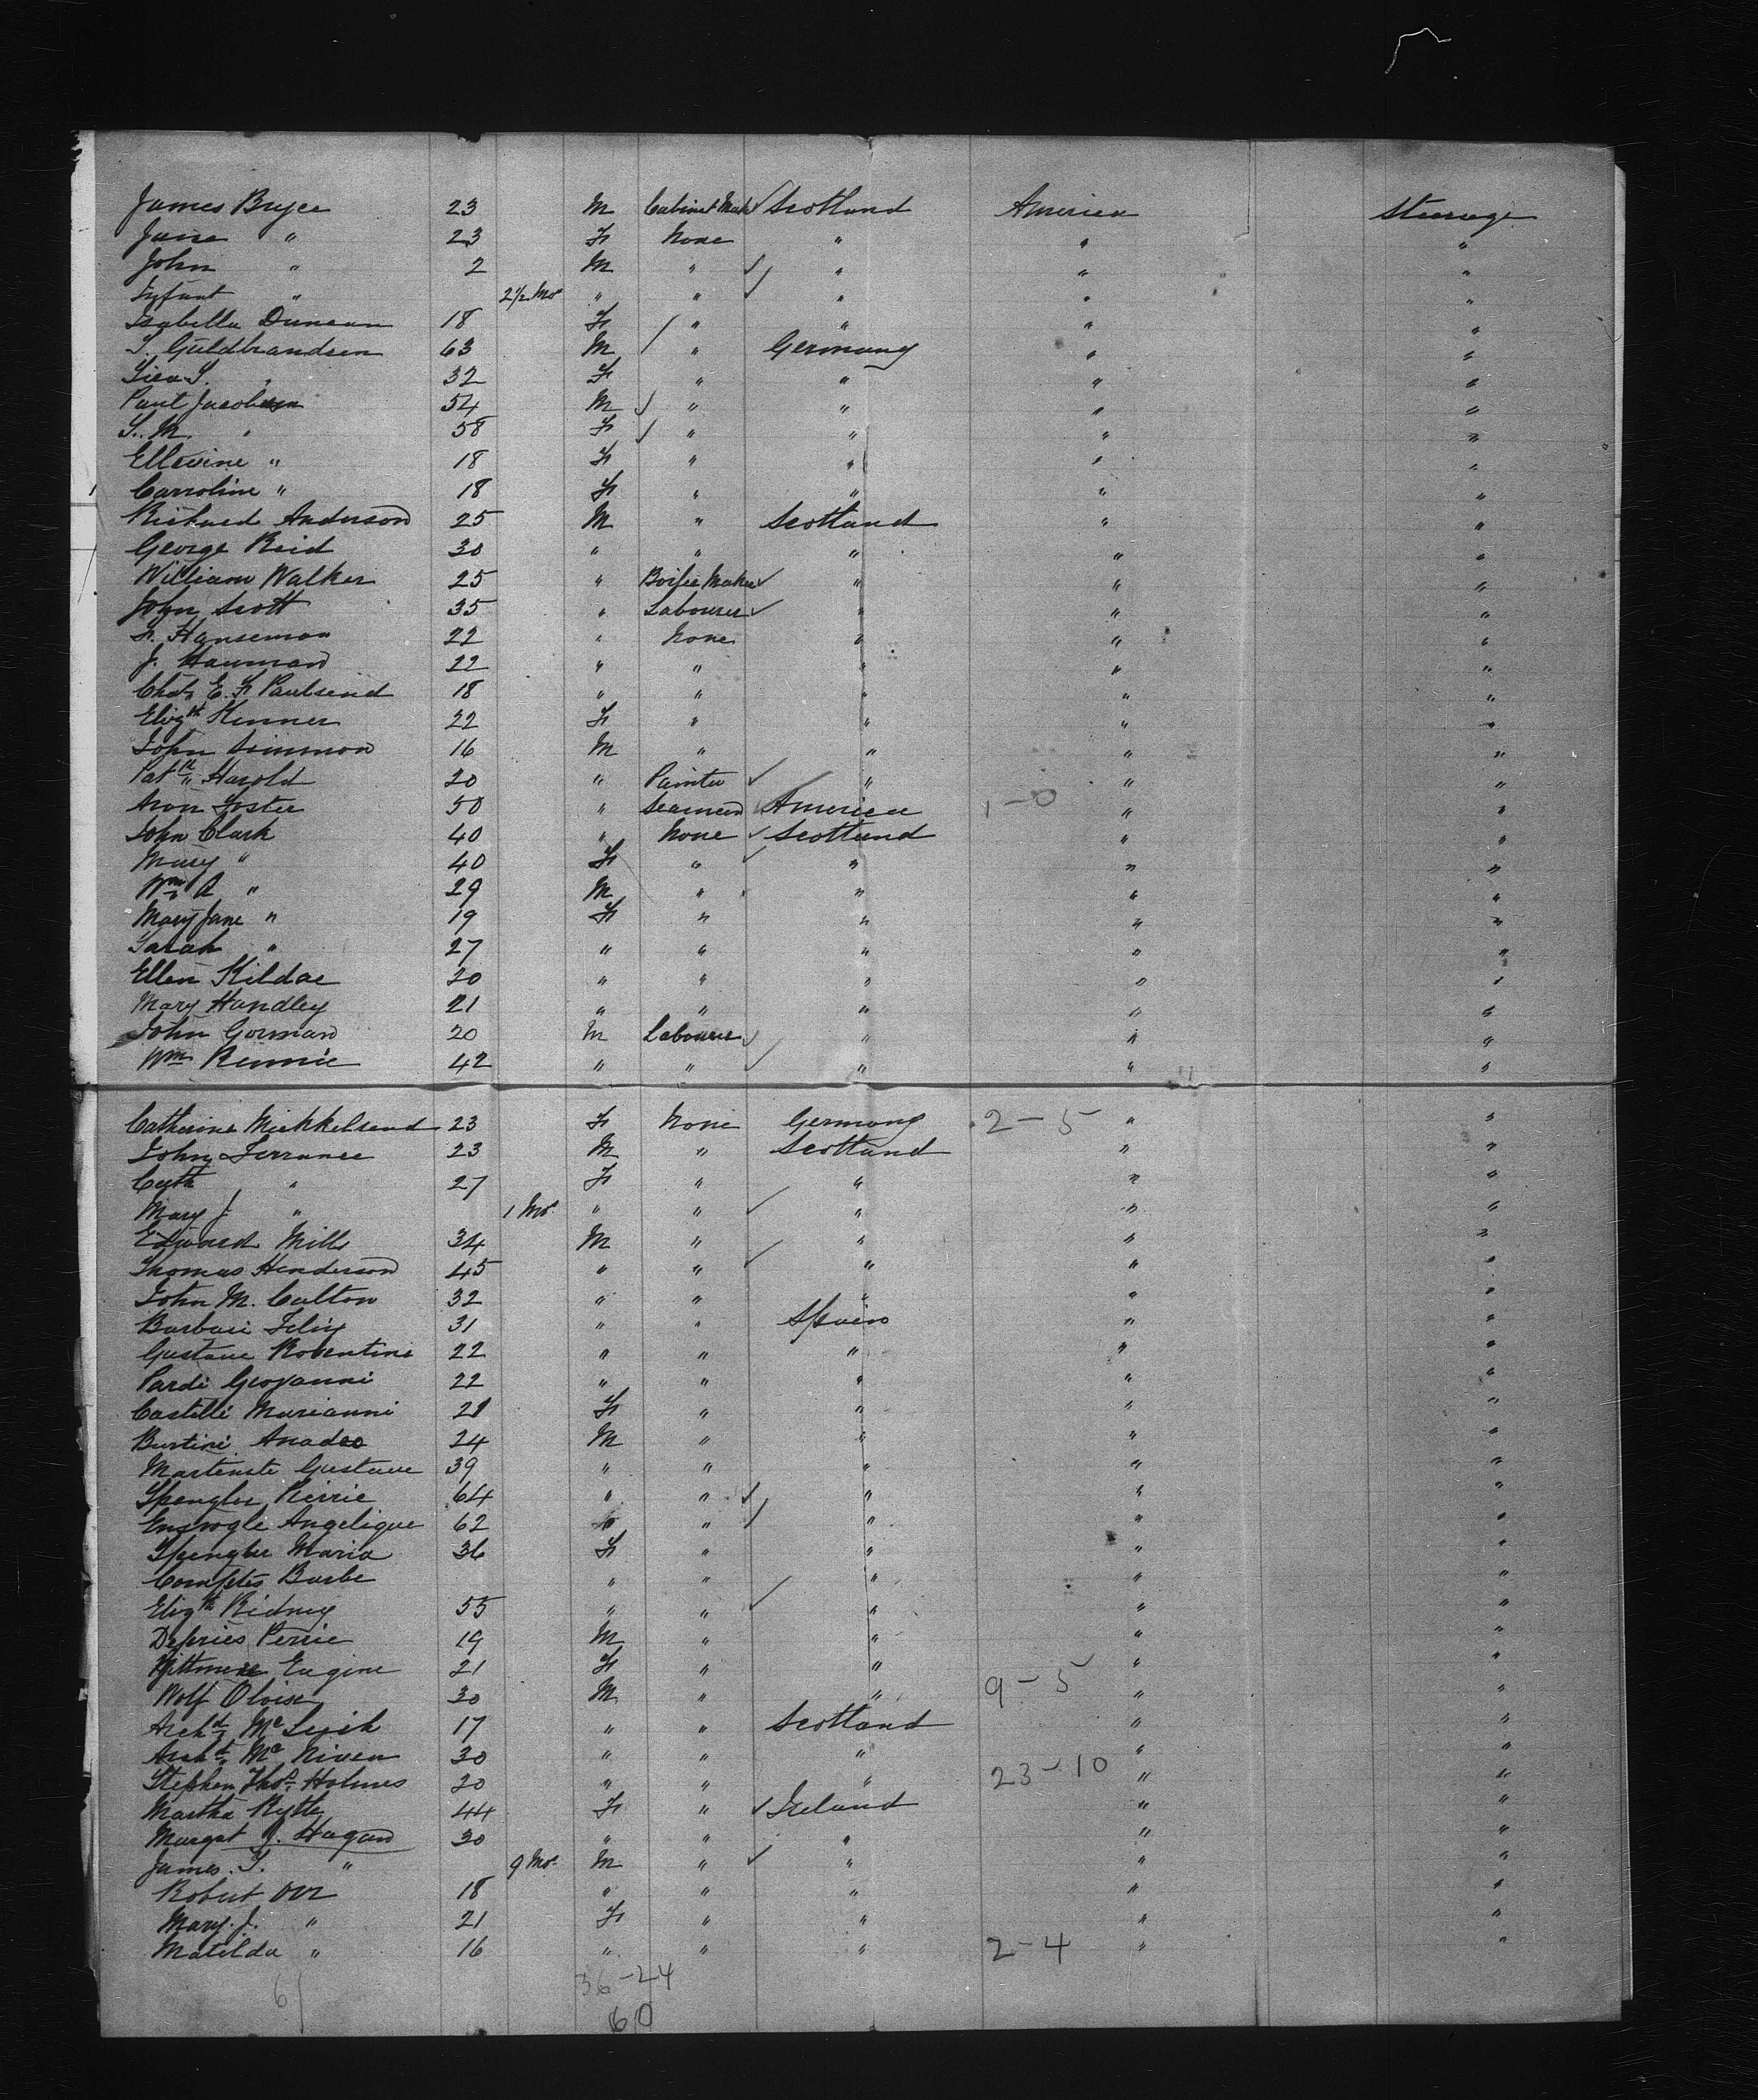 James Bryce 23 M Cabinet Mak Scotland America Steerage
Jane " 23 F None " " "
John " 2 M " " " "
Infant " 2½ Mos " " " " "
Isabella Duncan 18 F " " " "
S. Guldbrandsen 63 M " Germany " "
32 F " " " "
Paul Jacobsen 54 M " " " "
S. M. " 58 F " " " "
Ellevine " 18 F " " " "
Carroline " 18 F " " " "
Richard Anderson 25 M " Scotland " "
George Reid 30 " " " " "
William Walker 25 " Boiler Maker " " "
John Scott 35 " Labourer " " "
F. Hanseman 22 " None " " "
J. Hauman 22 " " " " "
Chas E. F Paulsend 18 " " " " "
Elizth Kenner 22 F " " " "
John Simmon 16 M " " " "
Patk Harold 20 " Painter " " "
Aron Foster 50 " Seamen America 1-0 " "
John Clark 40 " None Scotland " "
Mary " 40 F " " " "
Wm A " 29 M " " " "
Mary Jane " 19 F " " " "
Sarah " 27 " " " " "
Ellen Kildae 20 " " " " "
Mary Handley 21 " " " " "
John Gorman 20 M Labourer " " "
Wm Rennie 42 " " " " "
Catherine Mickkelsend 23 F None Germany 2-5 " "
John Torrance 23 M " Scotland " "
Cyth " 27 F " " " "
Mary J " 1 Mos " " " " "
Edward Mills 34 M " " " "
Thomas Henderson 45 " " " " "
John M. Culton 32 " " " " "
Barbari Felix 31 " " Spain " "
Gustave 22 " " " " "
Pardi Geovanni 22 " " " " "
Castelli Marianni 21 F " " " "
Burtini Anadeo 24 M " " " "
Gustave 39 " " " " "
Spengler Pierrie 64 " " " " "
Angelique 62 " " " "
Spengler Maria 36 F " " " "
Barbe " " " " "
Elizth Ridney 55 " " " " "
Defries Perrie 19 M " " " "
Eugine 21 F " " " "
Wolf Oloise 30 M " " 9-5 " "
Archd 17 " " Scotland " "
Archd Mc Niven 30 " " " " "
Stephen Thos Holmes 20 " " " 23-10 " "
Martha Kytle 44 F " Ireland " "
Margat J. Hagan 30 " " " " "
James. S. " 9 Mos M " " " "
Robert Orr 18 " " " " "
Mary. J. " 21 F " " " "
Matilda " 16 " " " 2-4 " "
61 36-24
60